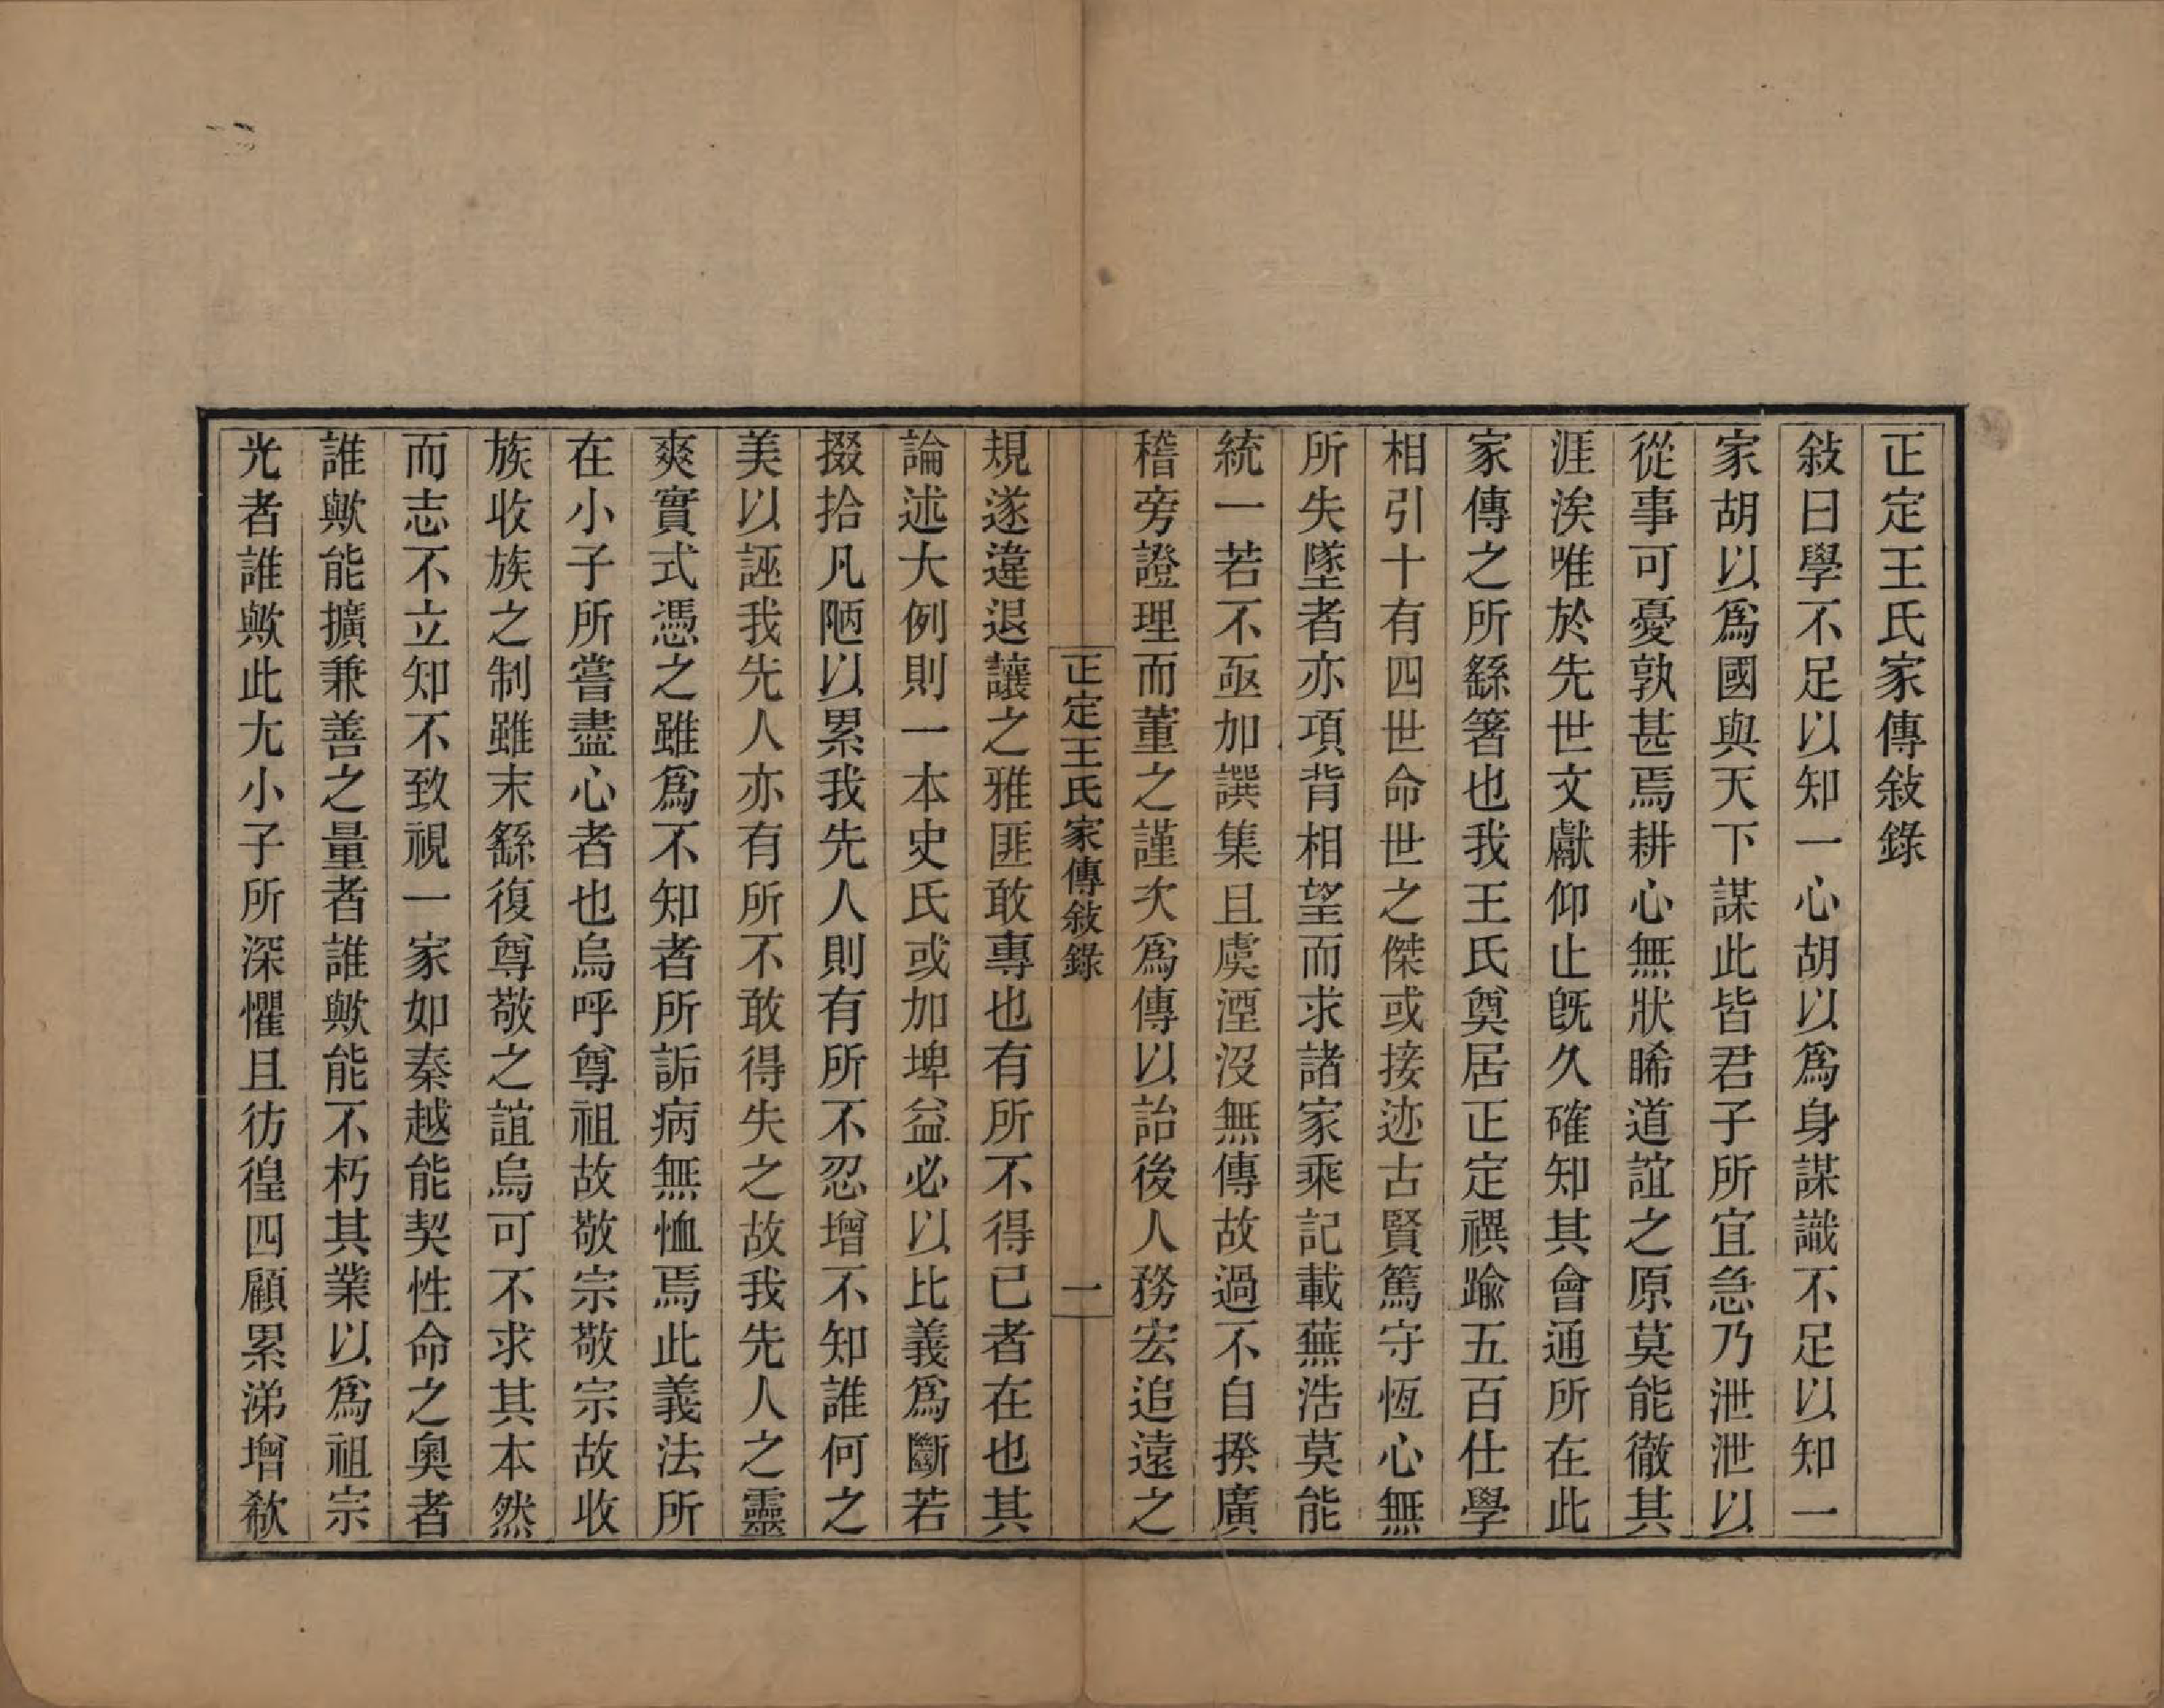 正定王氏家傳敍錄
敍曰學不足以知一心胡以爲身謀識不足以知一
家胡以爲國與天下謀此皆君子所宜急乃泄泄以
從事可憂孰甚焉耕心無狀睎道誼之原莫能徹其
涯涘唯於先世文獻仰止旣久確知其會通所在此
家傳之所繇箸也我王氏奠居正定禩踰五百仕學
相引十有四世命世之傑或接迹古賢篤守恆心無
所失墜者亦項背相望而求諸家乘記載蕪浩莫能
統一若不亟加譔集且虞湮沒無傳故過不自揆廣
稽旁證理而董之謹次爲傳以詒後人務宏追遠之
正定王氏家傳敍錄 一
規遂違退讓之雅匪敢專也有所不得已者在也其
論述大例則一本史氏或加埤益必以比義爲斷若
掇拾凡陋以累我先人則有所不忍增不知誰何之
美以誣我先人亦有所不敢得失之故我先人之靈
爽實式憑之雖爲不知者所詬病無恤焉此義法所
在小子所嘗盡心者也烏呼尊祖故敬宗敬宗故收
族收族之制雖末繇復尊敬之誼烏可不求其本然
而志不立知不致視一家如秦越能契性命之奧者
誰歟能擴兼善之量者誰歟能不朽其業以爲祖宗
光者誰歟此尢小子所深懼且彷徨四顧累涕增欷